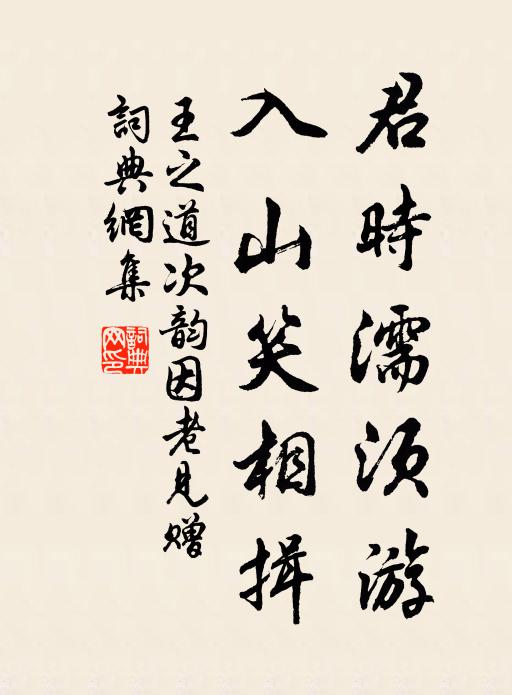 君時濡須游
入山笑相揖
王之道次韵因老見贈
詞典網集
詞典網印